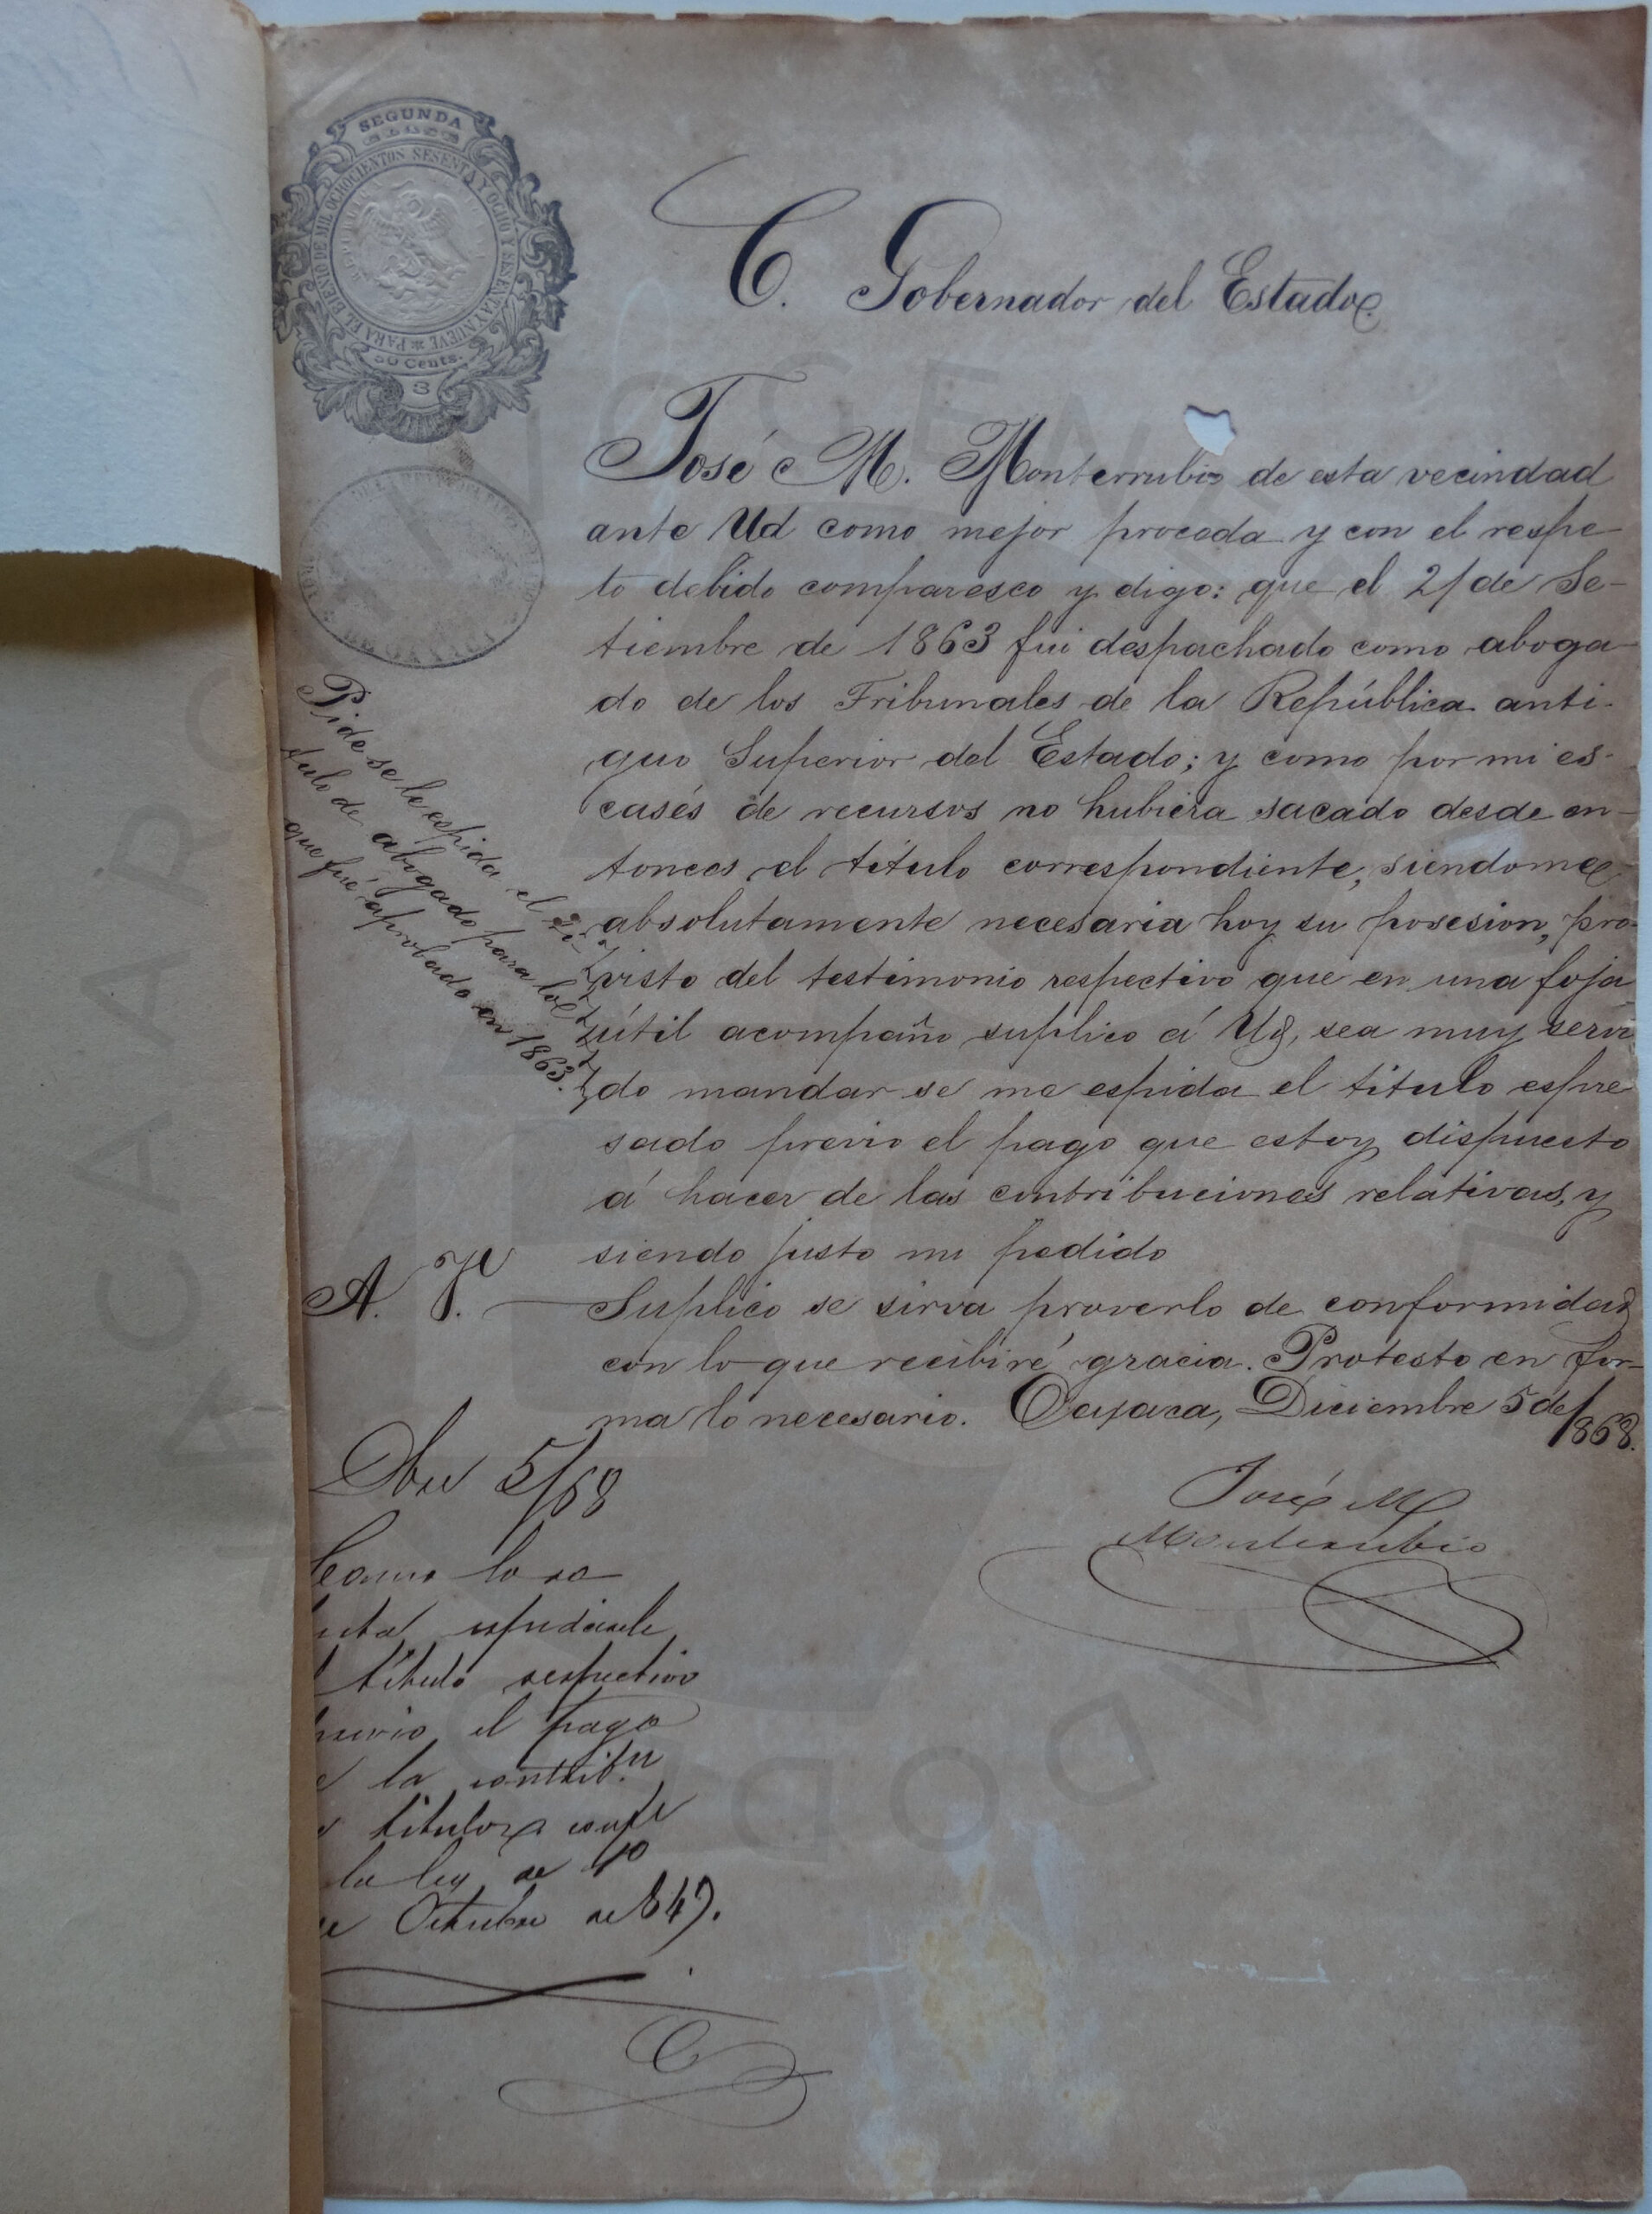 SEGUNDA
CLASE
PARA EL BIENIO DE MIL OCHOCIENTOS SESENTA Y OCHO Y SESENTA Y NUEVE
50 Cents.
3
C. Gobernador del Estado
José M. Monterrubio de esta vecindad
ante Ud como mejor proceda y con el respe
to debido comparesco y digo: que el 21 de Se-
tiembre de 1863 fui despachado como aboga
do de los Tribunales de la República anti-
guo Superior del Estado; y como por mi es-
casés de recursos no hubiera sacado desde en-
tonces el título correspondiente, siendome
absolutamente necesaria hoy su posesion, pro-
visto del testimonio respectivo que en una foja
útil acompaño suplico á Ud, sea muy servi
do mandar se me espida el titulo espre
sado previo el pago que estoy dispuesto
á hacer de las contribuciones relativas, y
siendo justo mi pedido
A. V. Suplico se sirva proverlo de conformidad
con lo que recibiré gracia. Protesto en for-
ma lo necesario. Oajaca, Diciembre 5 de
1868.
José M
Monterrubio
Pide se le espida el tí-
tulo de abogado para lo
que fué aprobado en 1863.
Dbre 5/68
Como lo so
espidasele
título respectivo
el pago
la contrib.n
titulos confe
la ley de 10
Octubre de 849.